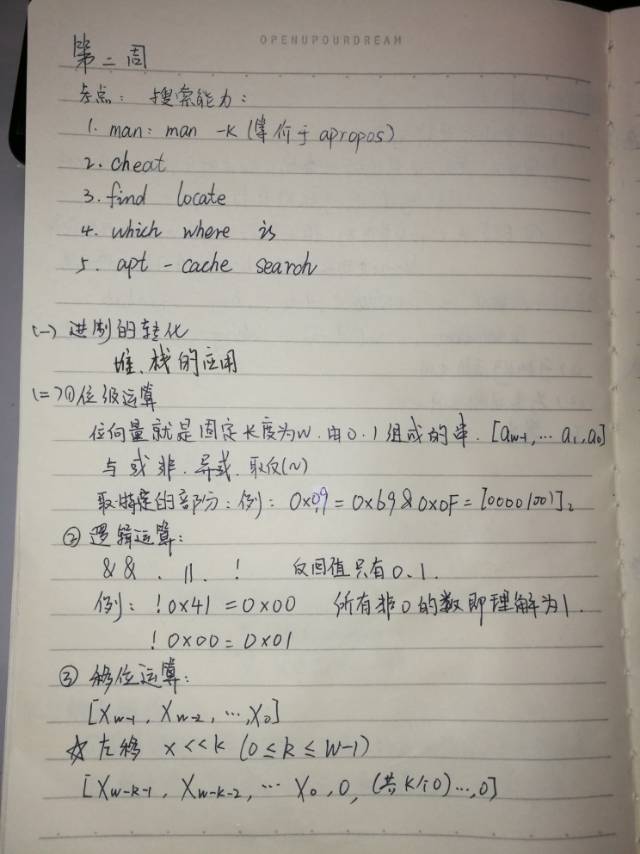 OPENUPOURDREAM
第二周
考点：搜索能力：
1. man：man -k (等价于 apropos)
2. cheat
3. find locate
4. which where is
5. apt - cache search
(一) 进制的转化
堆、栈的应用
(二) ①位级运算
位向量就是固定长度为w.由0.1组成的串. [aw-1, … a1, a0]
与 或 非. 异或. 取反(~)
取特定的部分：例：0x09 = 0x69 & 0x0F = [00001001]2
② 逻辑运算：
&& . || . ! 返回值只有0.1.
例：!0x41 = 0x00 所有非0的数即理解为1.
!0x00 = 0x01
③ 移位运算：
[Xw-1, Xw-2, …, X0]
☆ 左移 x<<k (0≤k≤w-1)
[Xw-k-1, Xw-k-2, … X0, 0, (共k个0) …, 0]